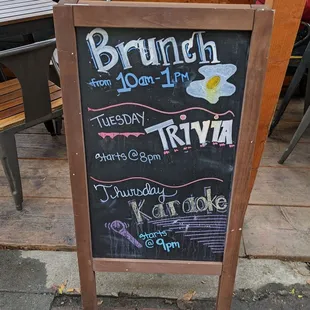 Brunch
from 10am-1PM
TUESDAY
TRIVIA
starts @ 8pm
Thursday
Karaoke
starts
@ 9pm